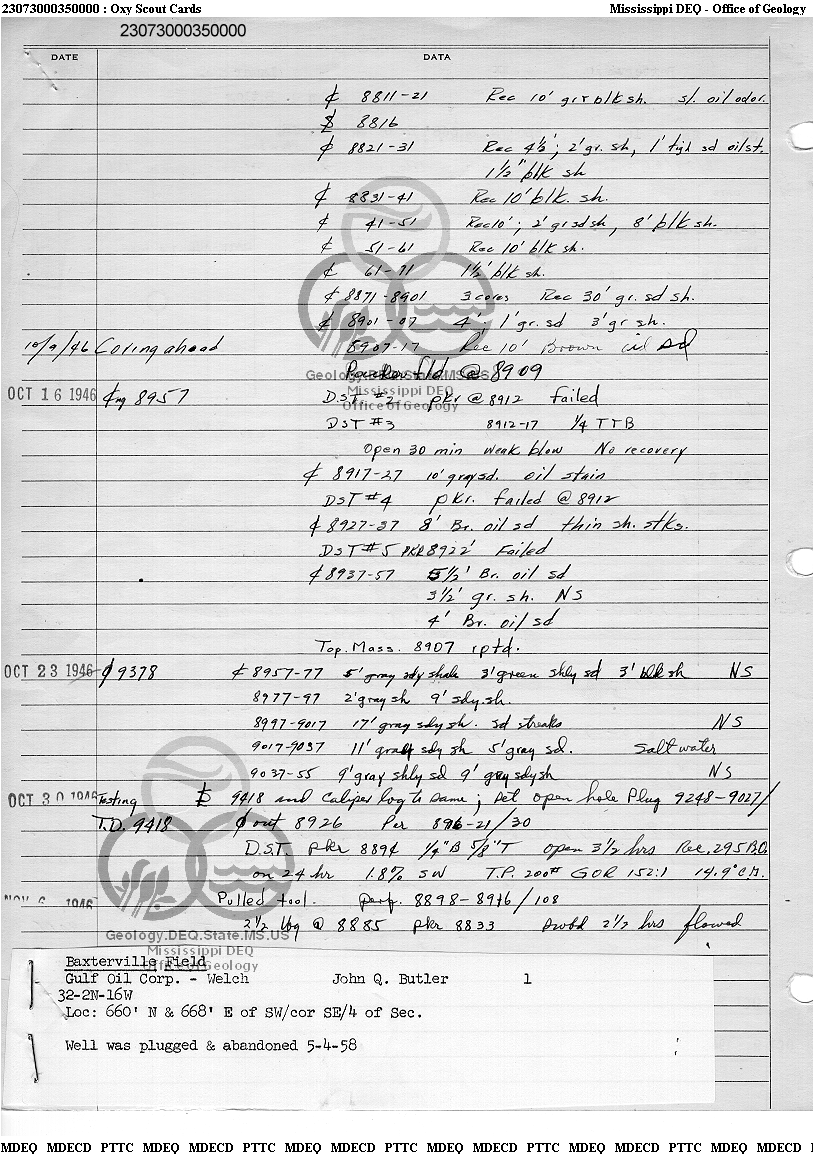 23073000350000 : Oxy Scout Cards Mississippi DEQ - Office of Geology
23073000350000
DATE DATA
₵ 8811-21 Rec 10' gr & blk sh. sl. oil odor.
8816
₵ 8821-31 Rec 4½'; 2' gr. sh, 1' tigh sd oil st.
1½" blk sh
₵ 8831-41 Rec 10' blk. sh.
₵ 41-51 Rec 10'; 2' gr sd sh, 8' blk sh.
₵ 51-61 Rec 10' blk sh.
₵ 61-71 1½' blk sh.
₵ 8871-8901 3 cores Rec 30' gr. sd sh.
₵ 8901-07 4'; 1' gr. sd 3' gr sh.
10/9/46 Coring ahead 8907-17 Rec 10' Brown oil sd
Packer fld @ 8909
Geology.DEQ.State.MS.US
Mississippi DEQ
Office of Geology
OCT 16 1946 ₵ng 8957 DST #2 pkr @ 8912 failed
DST #3 8912-17 ¼ TTB
Open 30 min weak blow No recovery
₵ 8917-27 10' gray sd. oil stain
DST #4 pkr. failed @ 8912
₵ 8927-37 8' Br. oil sd thin sh. stks.
DST #5 PKR 8922' Failed
₵ 8937-57 5½' Br. oil sd
3½' gr. sh. NS
4' Br. oil sd
Top. Mass. 8907 rptd.
OCT 23 1946 ₵ 9378 ₵ 8957-77 5' gray sdy shale 3' green shly sd 3' blk sh NS
8977-97 2' gray sh 9' sdy. sh.
8997-9017 17' gray sdy sh. sd streaks NS
9017-9037 11' gray sdy sh 5' gray sd. Salt water
9037-55 9' gray shly sd 9' gray sdy sh NS
OCT 30 1946 Testing 9418 and Caliper log to same; set open hole Plug 9248-9027/
T.D. 9418 ₵ out 8926 Per 8916-21/30
D.S.T pkr 8894 ¼"B 5/8"T open 3½ hrs Rec. 295 B.O.
on 24 hr 1.8% SW T.P. 200# GOR 152:1 14.9°
NOV 6 1946 Pulled tool. perf. 8898-8916/108
2½ tbg @ 8885 pkr 8833 Swbd 2½ hrs flowed
Geology.DEQ.State.MS.US
Mississippi DEQ
Office of Geology
Baxterville Field
Gulf Oil Corp. - Welch John Q. Butler 1
32-2N-16W
Loc: 660' N & 668' E of SW/cor SE/4 of Sec.
Well was plugged & abandoned 5-4-58
MDEQ MDECD PTTC MDEQ MDECD PTTC MDEQ MDECD PTTC MDEQ MDECD PTTC MDEQ MDECD PTTC MDEQ MDECD PTTC MDEQ MDECD